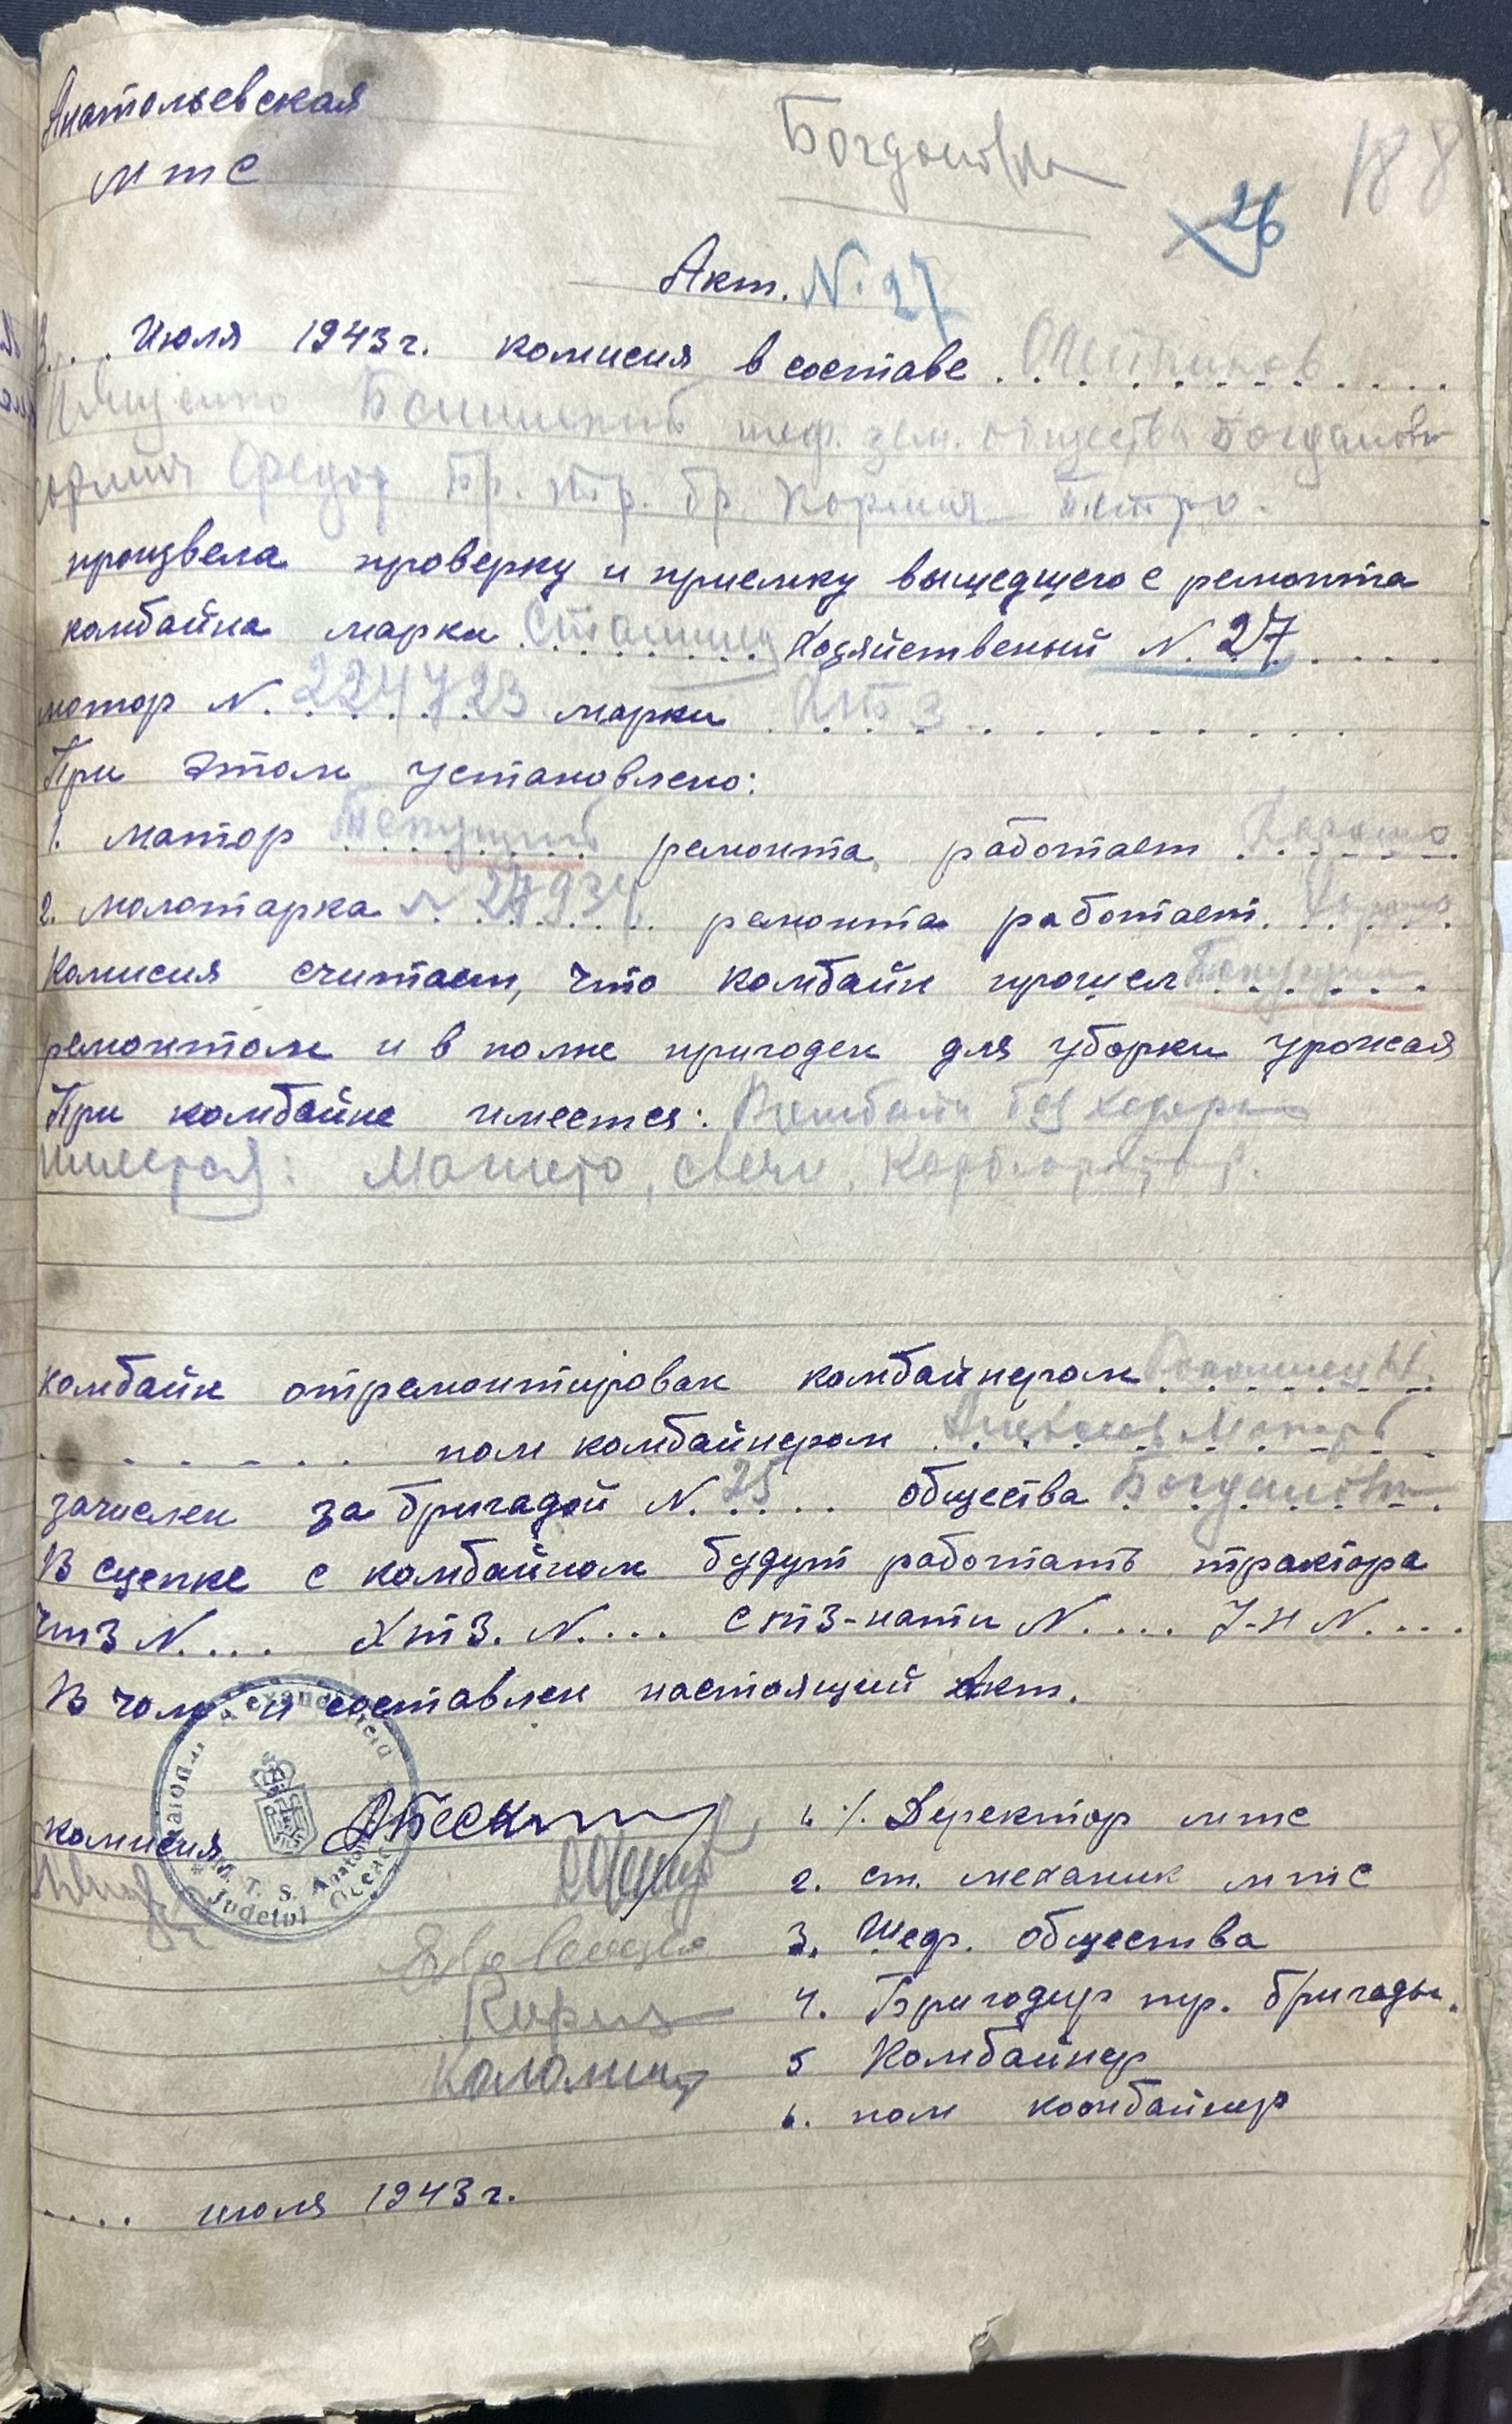 Анатольевская
МТС
Богдановка
188
26
Акт. N. 27
Июля 1943 г. комисия в составе
шеф. зем. общества Богдановк
Бр. тр. бр. Кормия Петро.
произвела проверку и приемку вышедшего с ремонта
комбайна марки Сталинец Хозяйственый N. 27
мотор N. 224723 марки
При этом установлено:
1. матор Текущий ремонта работает Хорошо
2. Молотарка N 24934 ремонта работает. Хорошо
Комисия считает, что комбайн прошел Текущим
ремонтом и в полне пригоден для уборки урожая
При комбайне имеется: Комбайн без Хедера
имеется: Магнето, свечи, Карбюратор.
комбайн отремонтирован комбайнером
пом комбайнером
зачислен за бригадой N. 25 общества Богдановки
В сцепке с комбайном будут работать трактора
чтз N. ... Хтз. N. ... СТЗ-нати N. ... У-Н N. ...
В чом и составлен настоящий Акт.
M. T. S.
Judetul Oceac
комисия
1. Деректор мтс
2. ст. механик мтс
3. Шеф. общества
4. Бригадир тр. бригады.
5 Комбайнер
6. пом комбайнер
Коломиец
.... июля 1943 г.